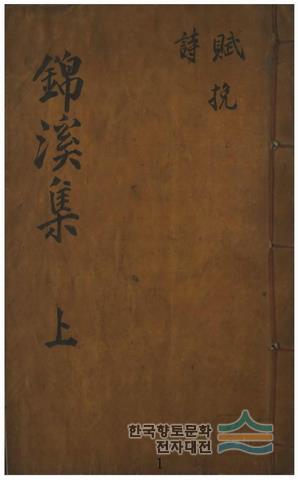 賦挽
詩
錦溪集 上
한국향토문화
전자대전
1